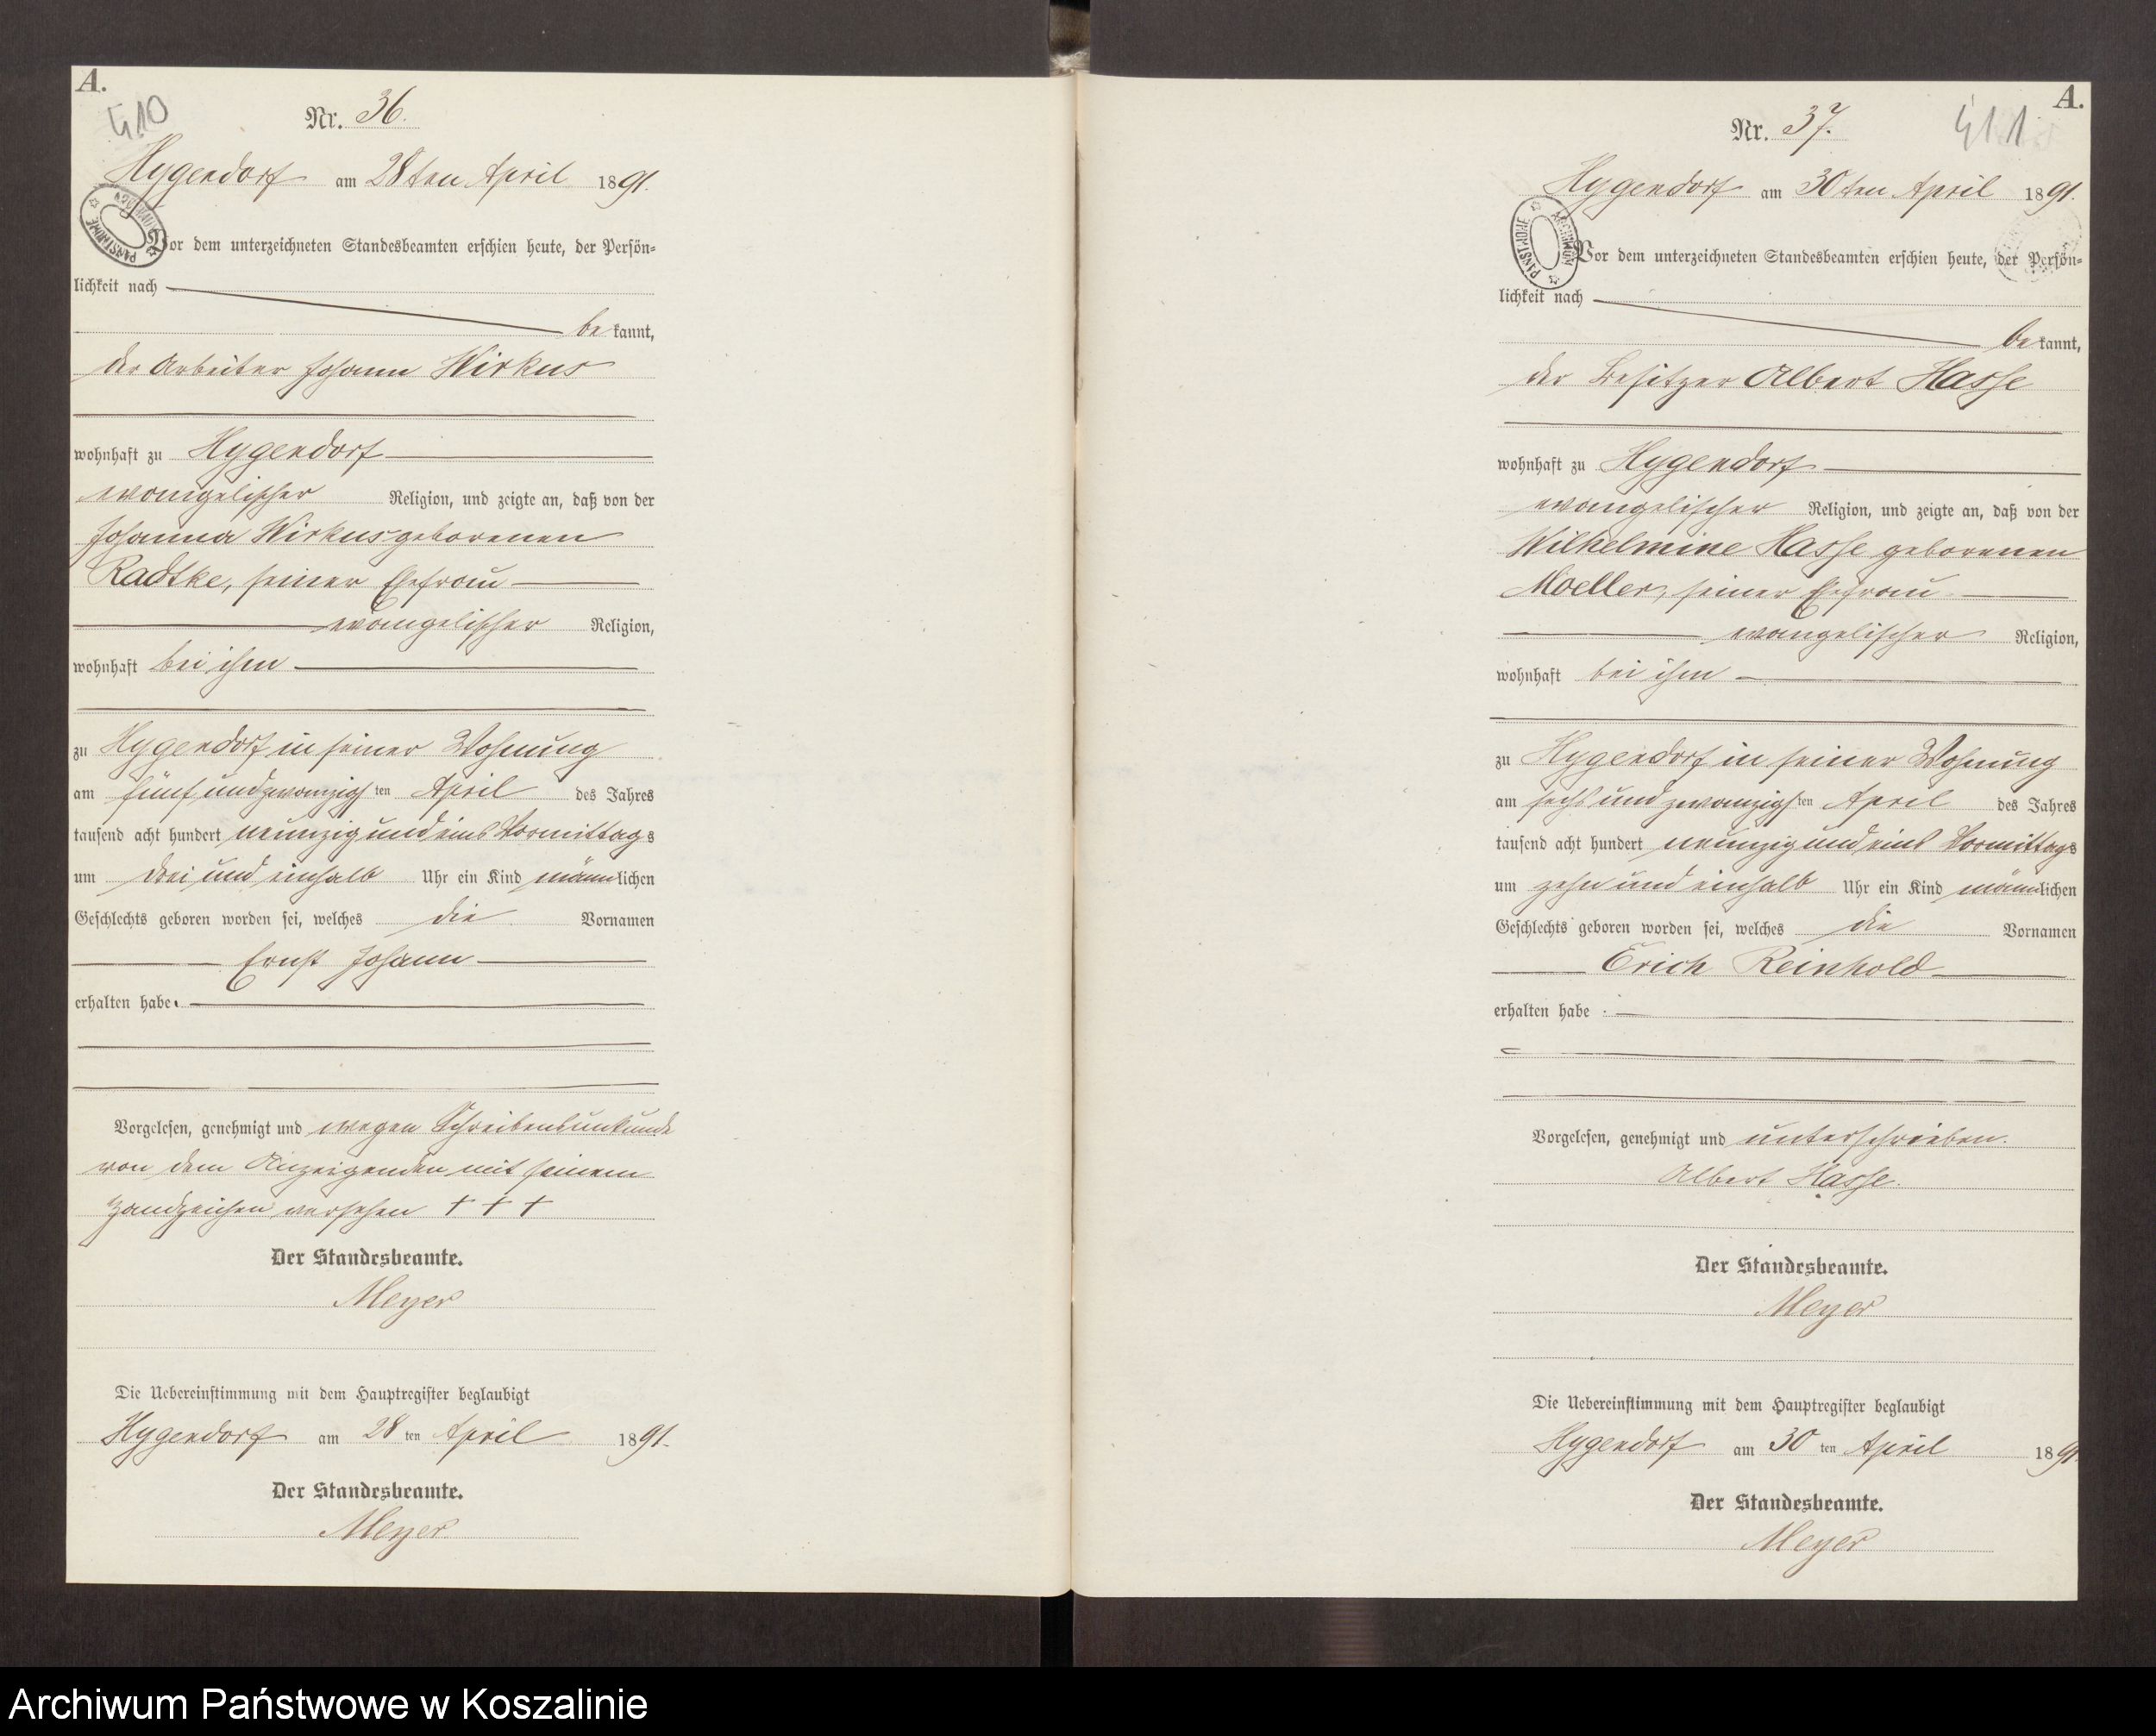 A.
410
Nr. 36.
Hygendorf am 28ten April 1891.
Vor dem unterzeichneten Standesbeamten erschien heute, der Persön=
lichkeit nach
be kannt,
der Arbeiter Johann Wirkus
wohnhaft zu Hygendorf
evangelischer Religion, und zeigte an, daß von der
Johanna Wirkus geborenen
Radtke, seiner Ehefrau
evangelischer Religion,
wohnhaft bei ihm
zu Hygendorf in seiner Wohnung
am fünf und zwanzigsten April des Jahres
tausend acht hundert neunzig und eins Vormittags
um drei und einhalb Uhr ein Kind männlichen
Geschlechts geboren worden sei, welches die Vornamen
Ernst Johann
erhalten habe.
Vorgelesen, genehmigt und wegen Schreibensunkunde
von dem Anzeigenden mit seinem
Handzeichen versehen + + +
Der Standesbeamte.
Meyer
Die Uebereinstimmung mit dem Hauptregister beglaubigt
Hygendorf am 28ten April 1891.
Der Standesbeamte.
Meyer
A.
411
Nr. 37.
Hygendorf am 30ten April 1891.
Vor dem unterzeichneten Standesbeamten erschien heute, der Persön=
lichkeit nach
be kannt,
der Besitzer Albert Hasse
wohnhaft zu Hygendorf
evangelischer Religion, und zeigte an, daß von der
Wilhelmine Hasse geborenen
Moeller, seiner Ehefrau
evangelischer Religion,
wohnhaft bei ihm
zu Hygendorf in seiner Wohnung
am sechs und zwanzigsten April des Jahres
tausend acht hundert neunzig und eins Vormittags
um zehn und einhalb Uhr ein Kind männlichen
Geschlechts geboren worden sei, welches die Vornamen
Erich Reinhold
erhalten habe.
Vorgelesen, genehmigt und unterschrieben.
Albert Hasse.
Der Standesbeamte.
Meyer
Die Uebereinstimmung mit dem Hauptregister beglaubigt
Hygendorf am 30ten April 1891.
Der Standesbeamte.
Meyer
ARCHIWUM PAŃSTWOWE
ARCHIWUM PAŃSTWOWE
Archiwum Państwowe w Koszalinie